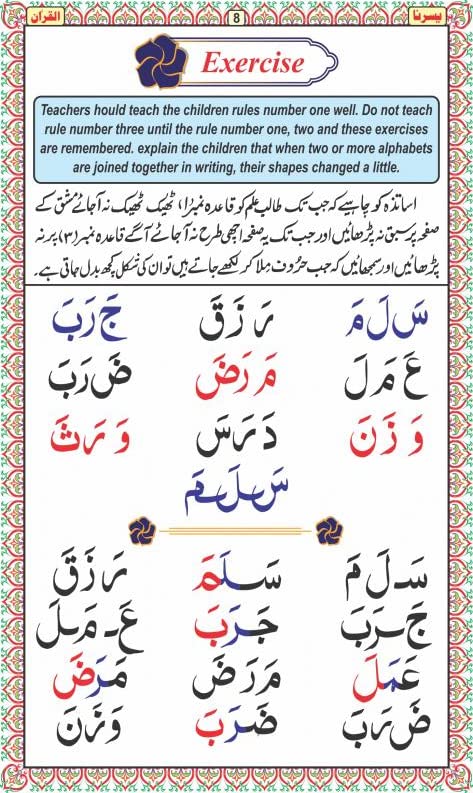 یسرنا 8 القرآن
Exercise
Teachers hould teach the children rules number one well. Do not teach
rule number three until the rule number one, two and these exercises
are remembered. explain the children that when two or more alphabets
are joined together in writing, their shapes changed a little.
اساتذہ کو چاہیے کہ جب تک طالب علم کو قاعدہ نمبر (۱) ٹھیک ٹھیک نہ آجائے مشق کے
صفحہ پر سبق نہ پڑھائیں اور جب تک یہ صفحہ اچھی طرح نہ آجائے آگے قاعدہ نمبر (۳) پر نہ
پڑھائیں اور سمجھائیں کہ جب حرُوف ملا کر لکھے جاتے ہیں تو ان کی شکل کچھ بدل جاتی ہے۔
سَ لَ مَ رَ زَ قَ جَ رَ بَ
عَ مَ لَ مَ رَ ضَ ضَ رَ بَ
وَ زَ نَ دَ رَ سَ وَ رَ ثَ
سَـلَـمَ
سَـ لَ مَ سَـلَمَ رَ زَ قَ
جَـ رَ بَ جَـرَبَ عَـ مَـ لَ
عَمَلَ مَ رَ ضَ مَرَضَ
ضَ رَ بَ ضَرَبَ وَ زَ نَ